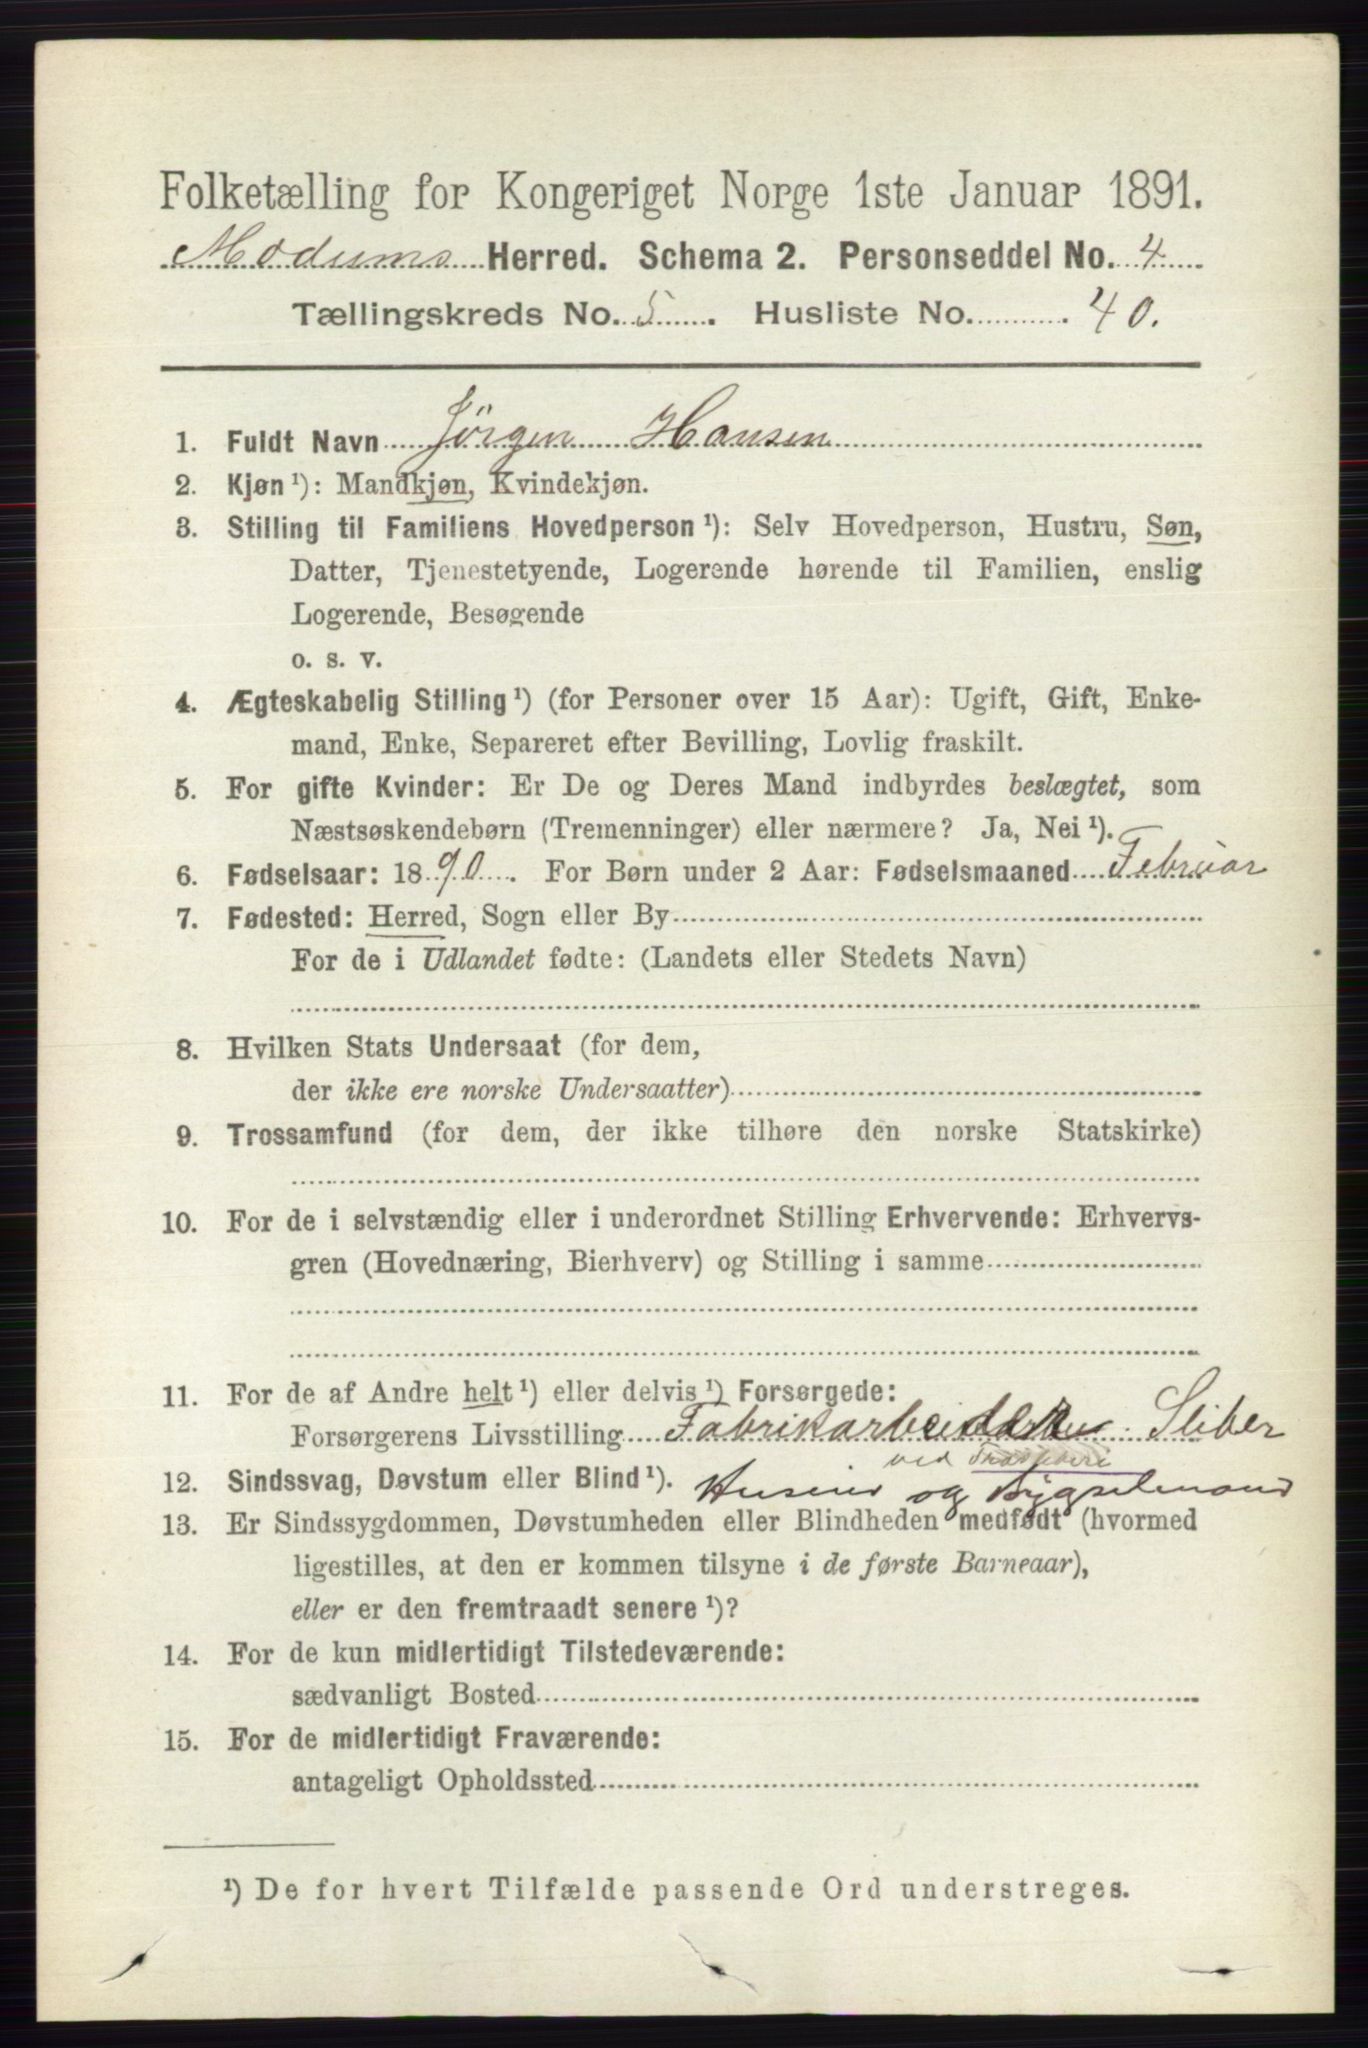 Folketælling for Kongeriget Norge 1ste Januar 1891.
Modums Herred. Schema 2. Personseddel No. 4
Tællingskreds No. 5. Husliste No. 40.
1. Fuldt Navn Jörgen Hansen
2. Kjøn ¹): Mandkjøn, Kvindekjøn.
3. Stilling til Familiens Hovedperson ¹): Selv Hovedperson, Hustru, Søn,
Datter, Tjenestetyende, Logerende hørende til Familien, enslig
Logerende, Besøgende
o. s. v.
4. Ægteskabelig Stilling ¹) (for Personer over 15 Aar): Ugift, Gift, Enke-
mand, Enke, Separeret efter Bevilling, Lovlig fraskilt.
5. For gifte Kvinder: Er De og Deres Mand indbyrdes beslægtet, som
Næstsøskendebørn (Tremenninger) eller nærmere? Ja, Nei ¹).
6. Fødselsaar: 1890. For Børn under 2 Aar: Fødselsmaaned Februar
7. Fødested: Herred, Sogn eller By
For de i Udlandet fødte: (Landets eller Stedets Navn)
8. Hvilken Stats Undersaat (for dem,
der ikke ere norske Undersaatter)
9. Trossamfund (for dem, der ikke tilhøre den norske Statskirke)
10. For de i selvstændig eller i underordnet Stilling Erhvervende: Erhvervs-
gren (Hovednæring, Bierhverv) og Stilling i samme
11. For de af Andre helt ¹) eller delvis ¹) Forsørgede:
Forsørgerens Livsstilling Fabrikarbeider Sliber
ved
12. Sindssvag, Døvstum eller Blind ¹). Huseier og Bygselmand
13. Er Sindssygdommen, Døvstumheden eller Blindheden medfødt (hvormed
ligestilles, at den er kommen tilsyne i de første Barneaar),
eller er den fremtraadt senere ¹)?
14. For de kun midlertidigt Tilstedeværende:
sædvanligt Bosted
15. For de midlertidigt Fraværende:
antageligt Opholdssted
¹) De for hvert Tilfælde passende Ord understreges.